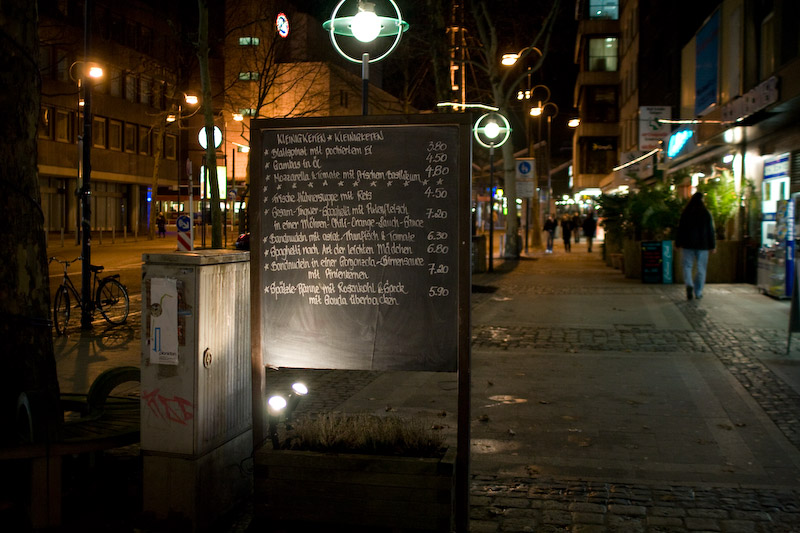 KLEINIGKEITEN * KLEINIGKEITEN
* Blattspinat mit pochiertem Ei 3.80
* Gambas in Öl 4.50
* Mozzarella & Tomate mit frischem Basilikum 4.80
* * * * * * * * * * * *
* frische Hühnersuppe mit Reis 4.50
* Sesam-Ingwer-Spaghetti mit Putenfleisch
in einer Möhren-Chili-Orangen-Lauch-Sauce 7.20
* Bandnudeln mit Thunfisch & Tomate 6.30
* Spaghetti nach Art der leichten Mädchen 6.80
* Bandnudeln in einer Gorgonzola-Birnensauce
mit Pinienkernen 7.20
* Spätzle-Pfanne mit Rosenkohl &
mit Gouda überbacken 5.90